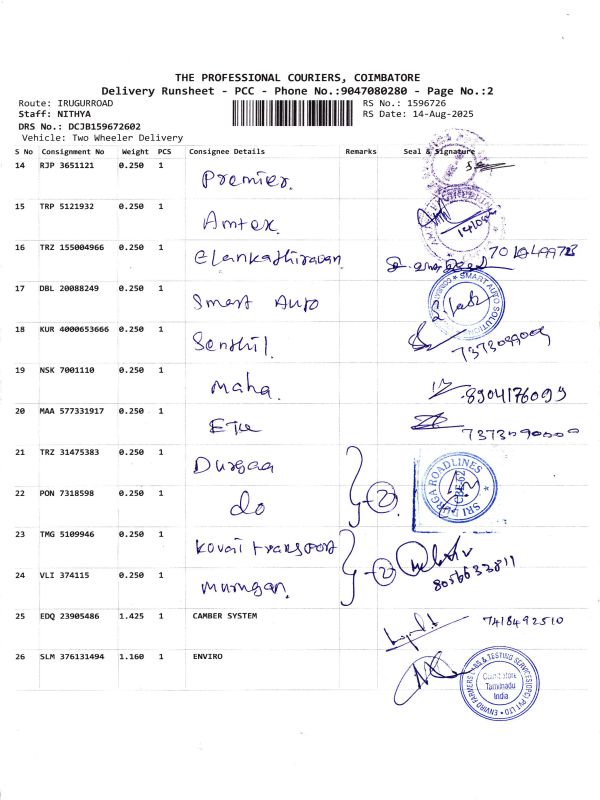 THE PROFESSIONAL COURIERS, COIMBATORE
Delivery Runsheet - PCC - Phone No.:9047080280 - Page No.:2
Route: IRUGURROAD RS No.: 1596726
Staff: NITHYA RS Date: 14-Aug-2025
DRS No.: DCJB159672602
Vehicle: Two Wheeler Delivery
S No Consignment No Weight PCS Consignee Details Remarks Seal & Signature
14 RJP 3651121 0.250 1 Premier.
15 TRP 5121932 0.250 1 Amtex.
16 TRZ 155004966 0.250 1 Elankathiravan
17 DBL 20088249 0.250 1 Smart Auto
SMART AUTO SOLUTION
18 KUR 4000653666 0.250 1 Senthil.
19 NSK 7001110 0.250 1 Maha. 8904176099
20 MAA 577331917 0.250 1
21 TRZ 31475383 0.250 1 Durgaa
22 PON 7318598 0.250 1 do 2
SRI DURGA ROADLINES
23 TMG 5109946 0.250 1 Kovai transport
24 VLI 374115 0.250 1 murugan. 2
8056633811
25 EDQ 23905486 1.425 1 CAMBER SYSTEM 7418492510
26 SLM 376131494 1.160 1 ENVIRO
ENVIRO FARMERS LABS & TESTING SERVICES(OPC) PVT LTD
Coimbatore
Tamilnadu
India